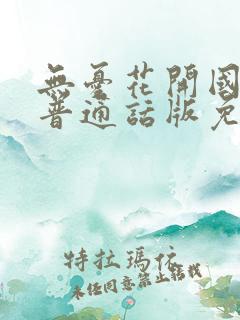 無憂花開國
普通話版免
特拉瑪依
未经同意禁止转载